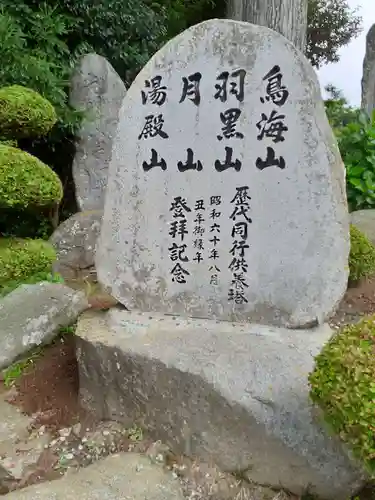 鳥海山
羽黒山
月山
湯殿山
歴代同行供養塔
昭和六十年八月
丑年御縁年
登拝記念